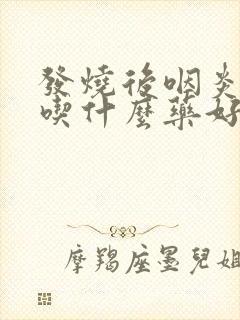 發燒後咽炎
喫什麼藥好
摩羯座墨兒姐